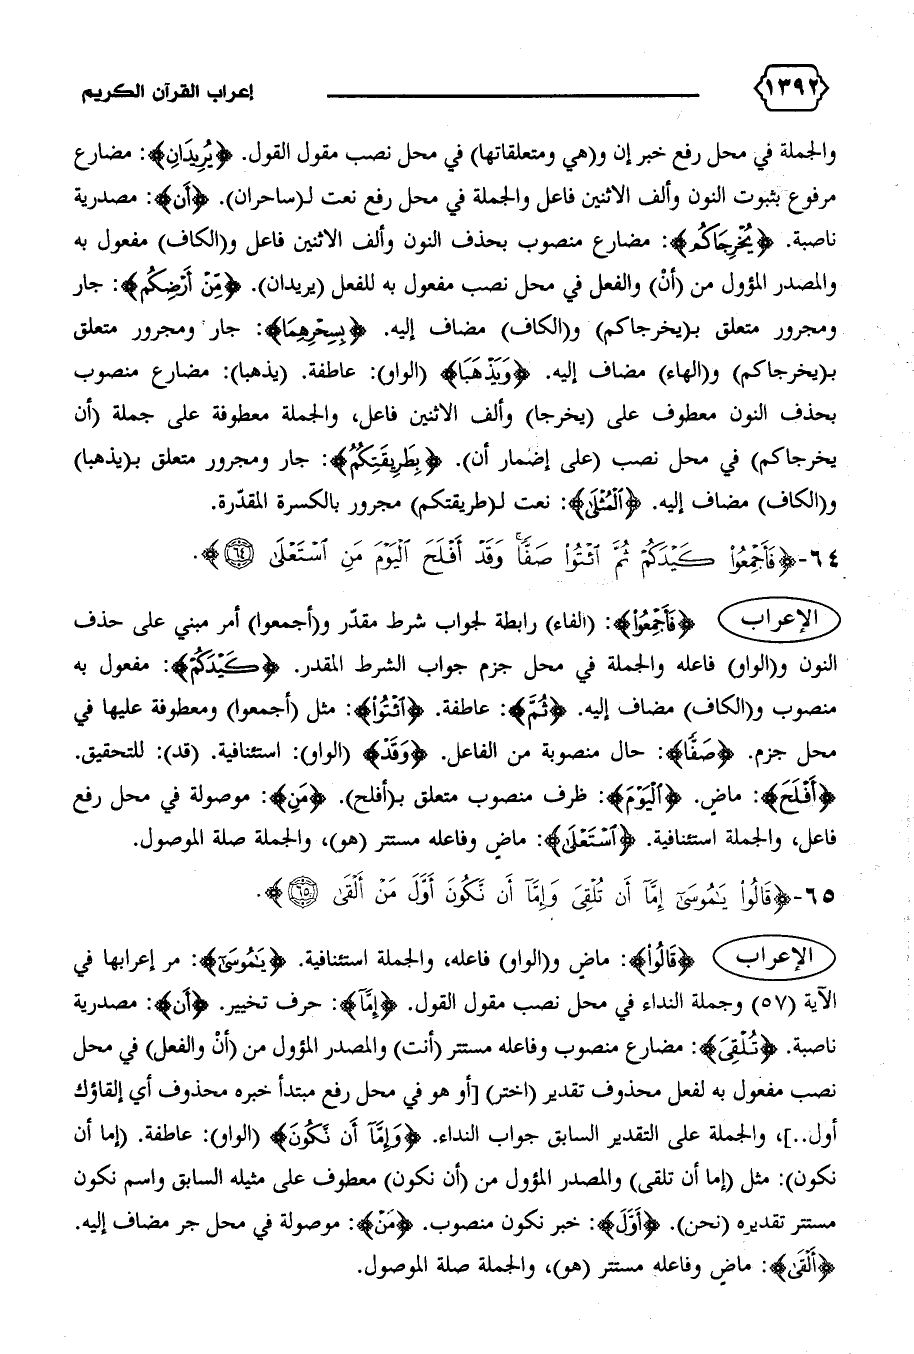 ١٣٩٢ إعراب القرآن الكريم
والجملة في محل رفع خبر إن و(هي ومتعلقاتها) في محل نصب مقول القول. ﴿يُرِيدَانِ﴾: مضارع
مرفوع بثبوت النون وألف الاثنين فاعل والجملة في محل رفع نعت لـ(ساحران). ﴿أَن﴾: مصدرية
ناصبة. ﴿يُخْرِجَاكُم﴾: مضارع منصوب بحذف النون وألف الاثنين فاعل و(الكاف) مفعول به
والمصدر المؤول من (أنْ) والفعل في محل نصب مفعول به للفعل (يريدان). ﴿مِّنْ أَرْضِكُم﴾: جار
ومجرور متعلق بـ(يخرجاكم) و(الكاف) مضاف إليه. ﴿بِسِحْرِهِمَا﴾: جار ومجرور متعلق
بـ(يخرجاكم) و(الهاء) مضاف إليه. ﴿وَيَذْهَبَا﴾ (الواو): عاطفة. (يذهبا): مضارع منصوب
بحذف النون معطوف على (يخرجا) وألف الاثنين فاعل، والجملة معطوفة على جملة (أن
يخرجاكم) في محل نصب (على إضمار أن). ﴿بِطَرِيقَتِكُمُ﴾: جار ومجرور متعلق بـ(يذهبا)
و(الكاف) مضاف إليه. ﴿ٱلْمُثْلَىٰ﴾: نعت لـ(طريقتكم) مجرور بالكسرة المقدّرة.
٦٤-﴿فَأَجْمِعُوا۟ كَيْدَكُمْ ثُمَّ ٱئْتُوا۟ صَفًّا ۚ وَقَدْ أَفْلَحَ ٱلْيَوْمَ مَنِ ٱسْتَعْلَىٰ ٦٤﴾.
الإعراب ﴿فَأَجْمِعُوا۟﴾: (الفاء) رابطة لجواب شرط مقدّر و(أجمعوا) أمر مبني على حذف
النون و(الواو) فاعله والجملة في محل جزم جواب الشرط المقدر. ﴿كَيْدَكُمْ﴾: مفعول به
منصوب و(الكاف) مضاف إليه. ﴿ثُمَّ﴾: عاطفة. ﴿ٱئْتُوا۟﴾: مثل (أجمعوا) ومعطوفة عليها في
محل جزم. ﴿صَفًّا﴾: حال منصوبة من الفاعل. ﴿وَقَدْ﴾ (الواو): استئنافية. (قد): للتحقيق.
﴿أَفْلَحَ﴾: ماض. ﴿ٱلْيَوْمَ﴾: ظرف منصوب متعلق بـ(أفلح). ﴿مَنِ﴾: موصولة في محل رفع
فاعل، والجملة استئنافية. ﴿ٱسْتَعْلَىٰ﴾: ماضٍ وفاعله مستتر (هو)، والجملة صلة الموصول.
٦٥-﴿قَالُوا۟ يَٰمُوسَىٰٓ إِمَّآ أَن تُلْقِىَ وَإِمَّآ أَن نَّكُونَ أَوَّلَ مَنْ أَلْقَىٰ ٦٥﴾.
الإعراب ﴿قَالُوا۟﴾: ماضٍ و(الواو) فاعله، والجملة استئنافية. ﴿يَٰمُوسَىٰٓ﴾: مر إعرابها في
الآية (٥٧) وجملة النداء في محل نصب مقول القول. ﴿إِمَّآ﴾: حرف تخيير. ﴿أَن﴾: مصدرية
ناصبة. ﴿تُلْقِىَ﴾: مضارع منصوب وفاعله مستتر (أنت) والمصدر المؤول من (أنْ والفعل) في محل
نصب مفعول به لفعل محذوف تقدير (اختر) [أو هو في محل رفع مبتدأ خبره محذوف أي إلقاؤك
أول..]، والجملة على التقدير السابق جواب النداء. ﴿وَإِمَّآ أَن نَّكُونَ﴾ (الواو): عاطفة. (إما أن
نكون): مثل (إما أن تلقى) والمصدر المؤول من (أن نكون) معطوف على مثيله السابق واسم نكون
مستتر تقديره (نحن). ﴿أَوَّلَ﴾: خبر نكون منصوب. ﴿مَنْ﴾: موصولة في محل جر مضاف إليه.
﴿أَلْقَىٰ﴾: ماضٍ وفاعله مستتر (هو)، والجملة صلة الموصول.